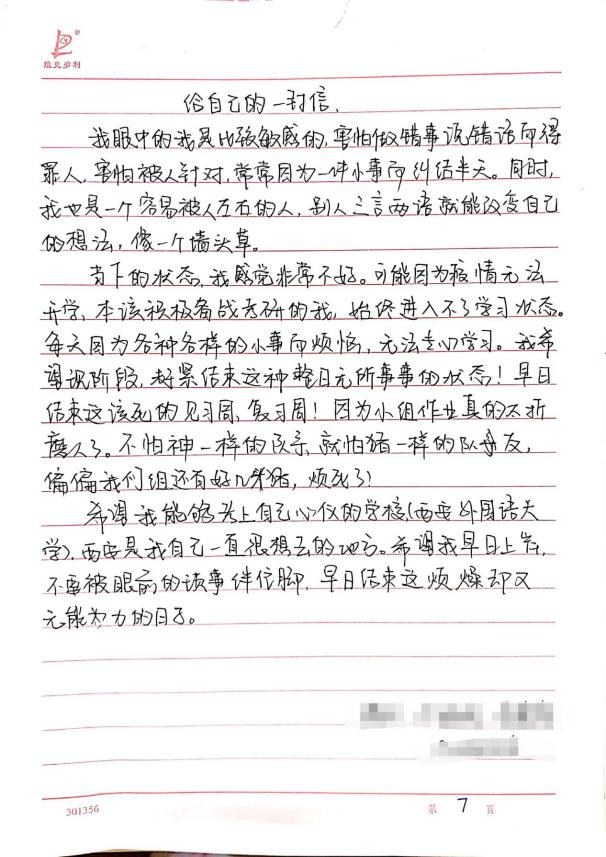 维克多利
给自己的一封信.
我眼中的我是比较敏感的,害怕做错事说错话而得
罪人,害怕被人针对,常常因为一件小事而纠结半天。同时,
我也是一个容易被人左右的人,别人三言两语就能改变自己
的想法,像一个墙头草。
当下的状态,我感觉非常不好。可能因为疫情无法
开学,本该积极备战考研的我,始终进入不了学习状态。
每天因为各种各样的小事而烦恼,无法专心学习。我希
望现阶段,赶紧结束这种整日无所事事的状态!早日
结束这该死的见习周,复习周!因为小组作业真的太折
磨人了。不怕神一样的队亲,就怕猪一样的队友,
偏偏我们组还有好几头猪,烦死了!
希望我能够考上自己心仪的学校(西安外国语大
学).西安是我自己一直很想去的地方。希望我早日上岸,
不要被眼前的琐事绊住脚,早日结束这烦燥却又
无能为力的日子。
301356
第 7 頁